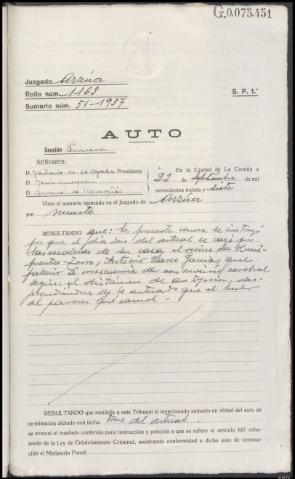 G.0.075.451
Juzgado Arzúa
Rollo núm. 1163
Sumario núm. 51-1937
S. P. 1.ª
AUTO
Sección Primera
SEÑORES:
D. Presidente
D.
D.
En la Ciudad de La Coruña a
22 de Septiembre de mil
novecientos treinta y siete
Visto el sumario instruido en el Juzgado de Arzúa
por muerte
RESULTANDO que: la presente causa se instruyó
por que el día dos del actual se cayó por
las escaleras de su casa el vecino de
Antonio García, que
falleció a consecuencia de
según el dictamen de
de lo actuado que el hecho
al parecer fué casual.
RESULTANDO que remitido a este Tribunal el mencionado sumario en virtud del auto de
terminación dictado con fecha del actual
se evacuó el traslado conferido para instrucción y petición a que se refiere el artículo 627 refor-
mado de la Ley de Enjuiciamiento Criminal, mostrando conformidad a dicho auto de termina-
ción el Ministerio Fiscal